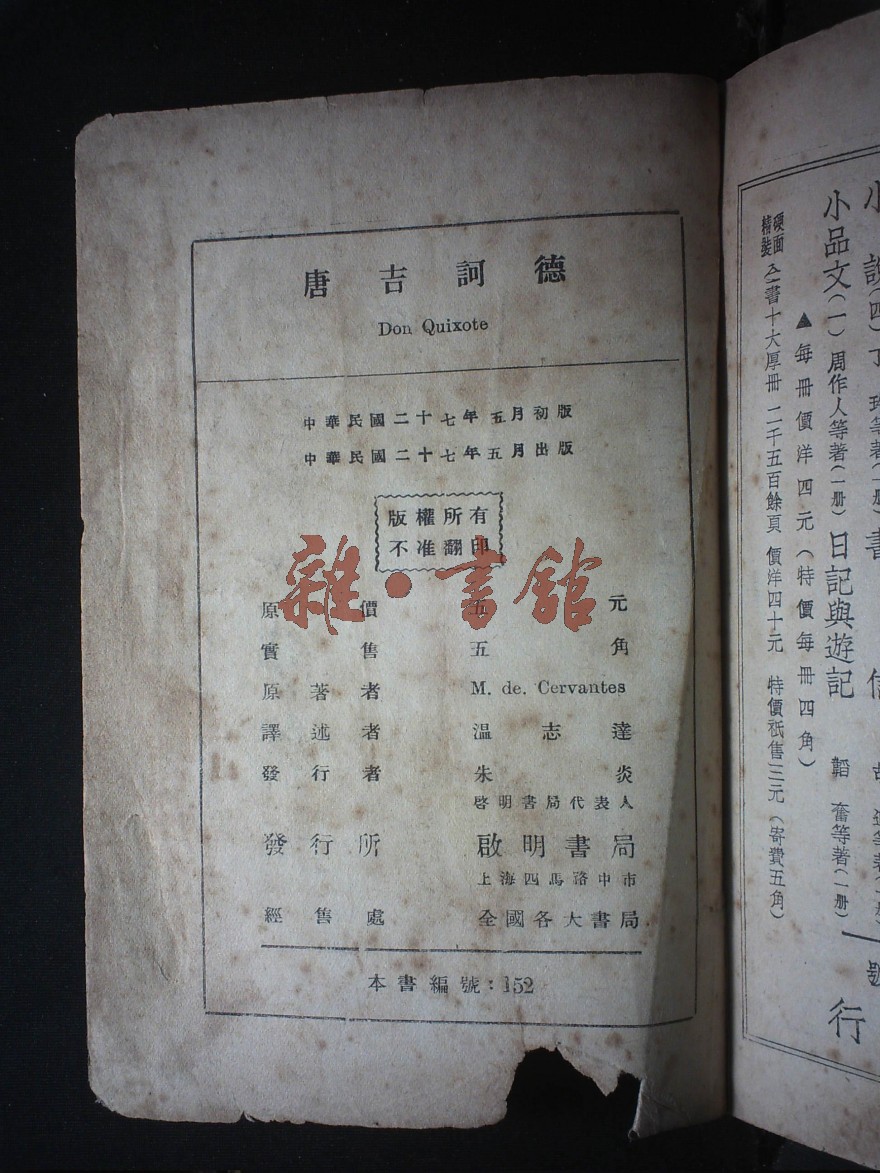 唐吉訶德
Don Quixote
中華民國二十七年五月初版
中華民國二十七年五月出版
版權所有
不准翻印
雜·書館
原價 元
實售 五角
原著者 M. de. Cervantes
譯述者 溫志達
發行者 朱炎
啓明書局代表人
發行所 啟明書局
上海四馬路中市
經售處 全國各大書局
本書編號：152
小說(四)丁 等著(一册) 書 信
小品文(一)周作人等著(一册) 日記與遊記 韜奮等著(一册)
▲每冊價洋四元(特價每冊四角)
硬面精裝 全書十六厚冊 二千五百餘頁 價洋四十元 特價祇售三元(寄費五角)
行